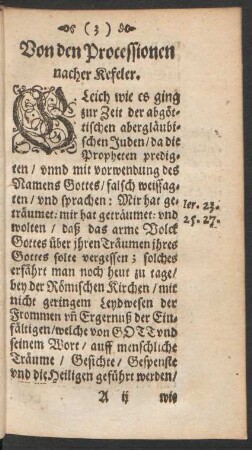 ( 3 )
Von den Processionen
nacher Kefeler.
GLeich wie es ging
zur Zeit der abgöt-
tischen abergläubi-
schen Juden / da die
Propheten predig-
ten / vnnd mit vorwendung des
Namens Gottes / falsch weissag-
ten / vnd sprachen: Mir hat ge-
träumet: mir hat geträumet: vnd
wolten / daß das arme Volck
Gottes über jhren Träumen jhres
Gottes solte vergessen; solches
erfährt man noch heut zu tage /
bey der Römischen Kirchen / mit
nicht geringem Leydwesen der
Frommen vñ Ergernuß der Ein-
fältigen / welche von GOTT vnd
seinem Wort / auff menschliche
Träume / Gesichte / Gespenste
vnd die Heiligen geführt werden /
Ier. 23.
25. 27.
A ij wie